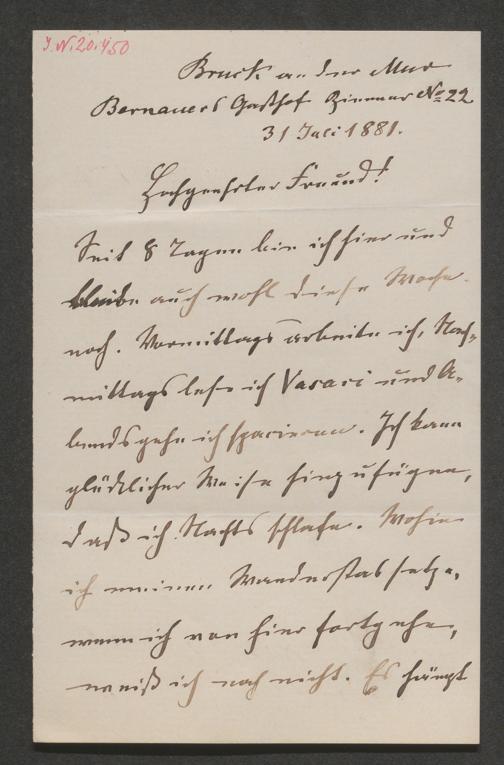 J.N. 20.450
Bruck a. der Mur
Bernauers Gasthof Zimmer No 22
31 Juli 1881.
Hochgeehrter Freund!
Seit 8 Tagen bin ich hier und
bleibe auch wohl diese Woche
noch. Vormittags arbeite ich, Nach-
mittags lese ich Vasari und A-
bends gehe ich spazieren. Ich kann
glücklicher Weise hinzufügen,
daß ich Nachts schlafe. Wohin
ich meinen Wanderstab setze,
wenn ich von hier fortgehe,
weiß ich noch nicht. Es hängt